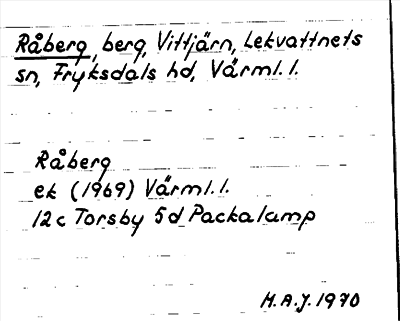 Råberg, berg, Vittjärn, Lekvattnets
sn, Fryksdals hd, Värml. l.
Råberg
ek (1969) Värml. l.
12c Torsby 5d Packalamp
H.A.J. 1970